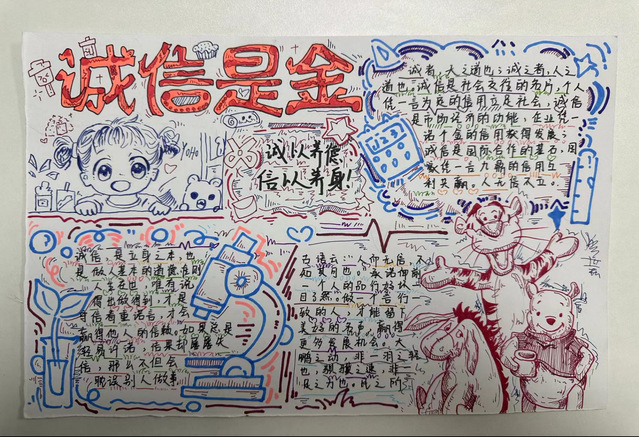 诚信是金
YoHo
诚以养德
信以养身!
123
诚者,天之道也;诚之者,人之
道也。诚信是社会交往的名片,个人
凭一言为足的信用立足社会,诚信
是市场经济的功能,企业凭一
诺千金的信用获得发展;
诚信是国际合作的基石,国
家凭一言九鼎的信用互
利共赢。人无信不立。
诚信是立身之本,也
是做人基本的道德准则
人生在世,唯有说
得出做得到,才是
守信者重诺言,才会
赢得他人的信赖。如果总是
轻易许诺,结果却屡屡失
信,那么不但会
耽误别人做事
古语云:人而无信,不
知其可也。承诺仰制
一个人的品行好坏
目了然。做一个言行一
致的人,才能留下
美好的名声,赢得
更多发展机会。大
鹏之动,非一羽之轻
也,骐骥之速,非一
足之力也。民之所